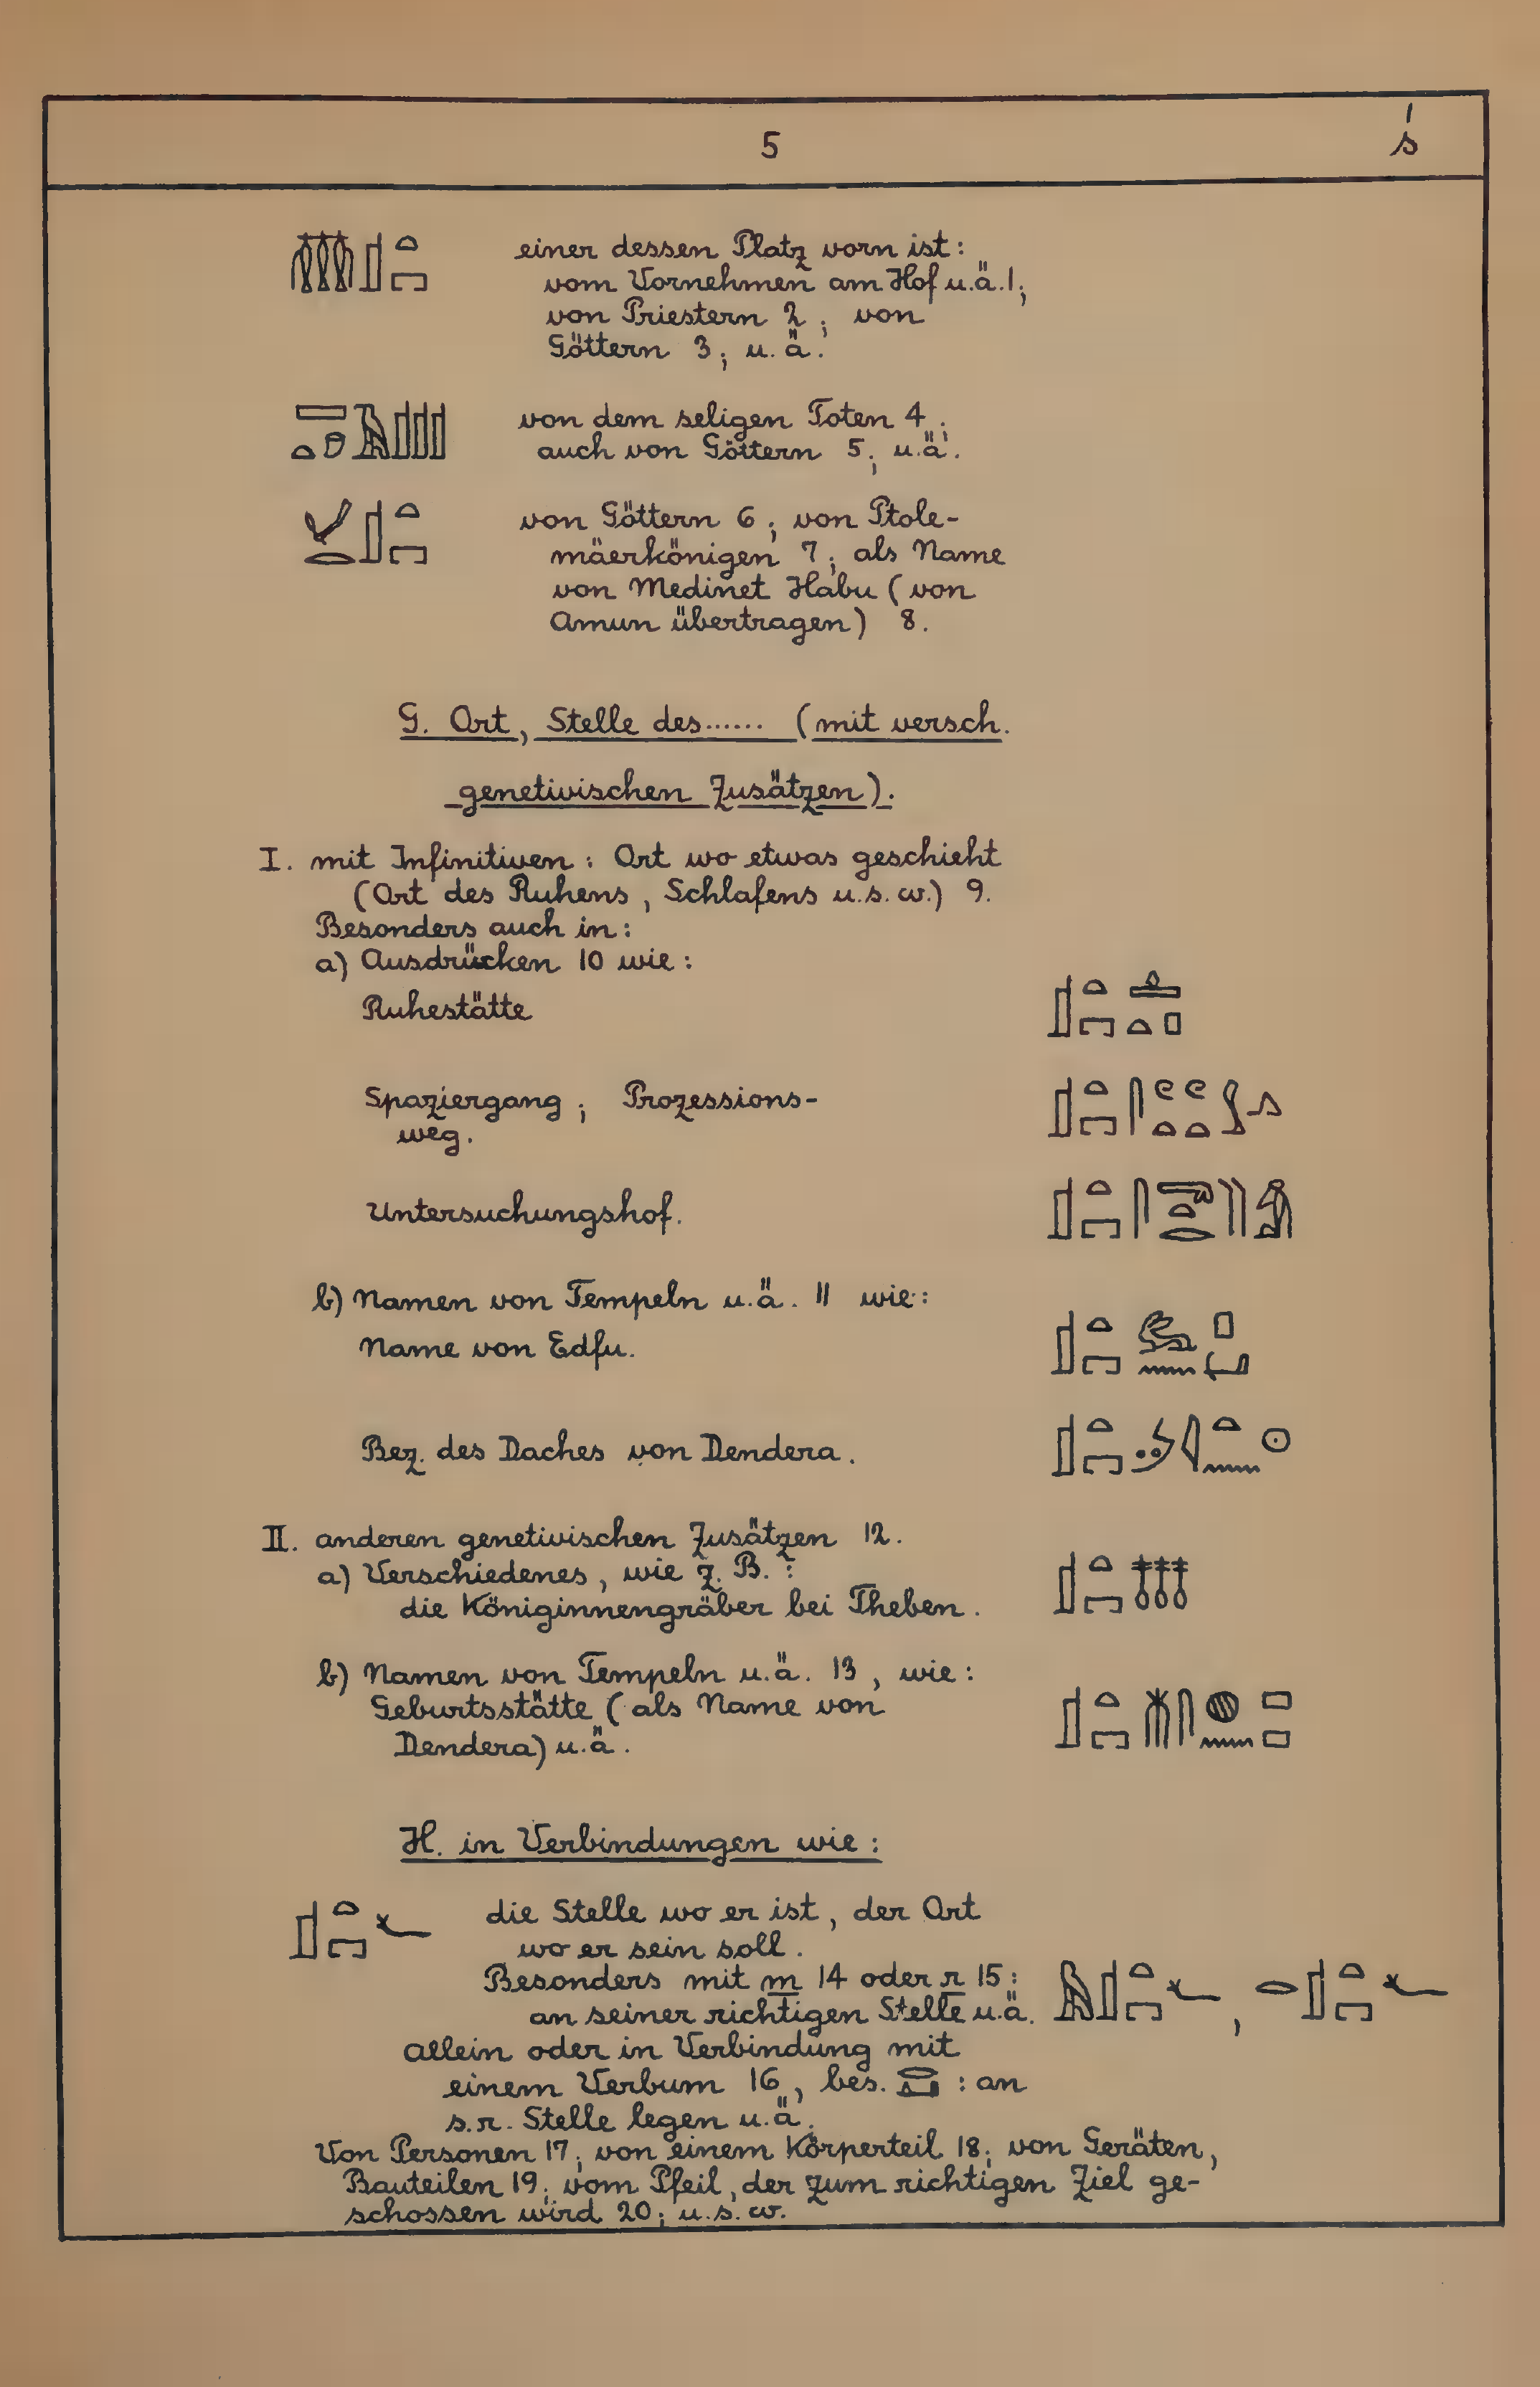 5
ś
einer dessen Platz vorn ist:
vom Vornehmen am Hof u.ä. 1;
von Priestern 2; von
Göttern 3; u. ä.
von dem seligen Toten 4;
auch von Göttern 5; u.ä.
von Göttern 6; von Ptole-
mäerkönigen 7; als Name
von Medinet Habu (von
Amun übertragen) 8.
G. Ort, Stelle des...... (mit versch.
genetivischen Zusätzen).
I. mit Infinitiven: Ort wo etwas geschieht
(Ort des Ruhens, Schlafens u.s.w.) 9.
Besonders auch in:
a) Ausdrücken 10 wie:
Ruhestätte
Spaziergang; Prozessions-
weg.
Untersuchungshof.
b) Namen von Tempeln u.ä. 11 wie:
Name von Edfu.
Bez. des Daches von Dendera.
II. anderen genetivischen Zusätzen 12.
a) Verschiedenes, wie z. B.:
die Königinnengräber bei Theben.
b) Namen von Tempeln u.ä. 13, wie:
Geburtsstätte (als Name von
Dendera) u.ä.
H. in Verbindungen wie:
die Stelle wo er ist, der Ort
wo er sein soll.
Besonders mit m 14 oder r 15:
an seiner richtigen Stelle u.ä. ,
allein oder in Verbindung mit
einem Verbum 16, bes. : an
s.r. Stelle legen u.ä.
Von Personen 17; von einem Körperteil 18; von Geräten,
Bauteilen 19; vom Pfeil, der zum richtigen Ziel ge-
schossen wird 20; u.s.w.